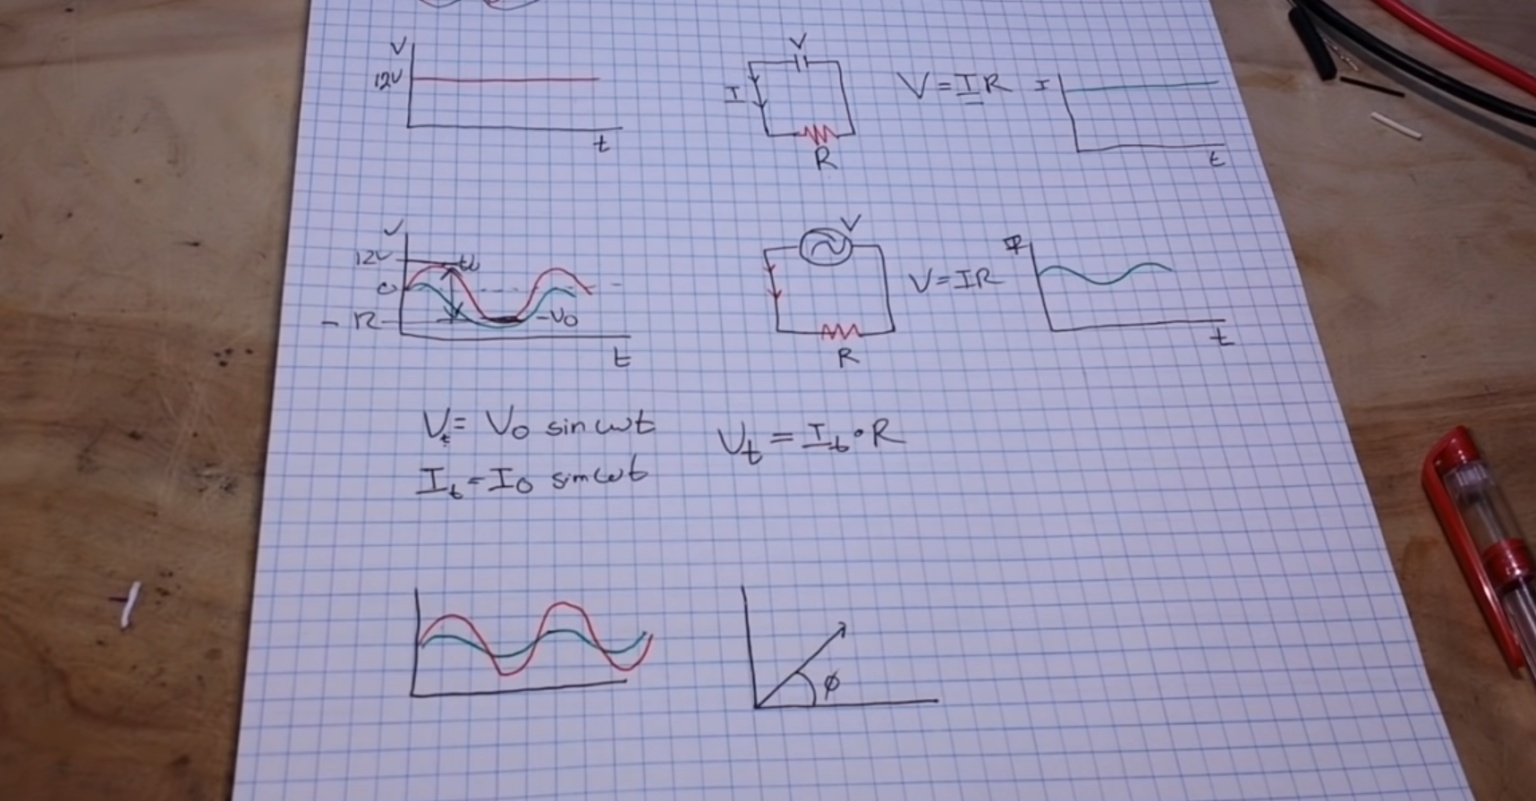 V
12V
t
V
I
R
V = IR
I
t
V
12V
0
- 12
-V0
t
V
R
V = IR
I
t
Vt = V0 sin ωt
It = I0 sin ωt
Vt = It · R
ϕ